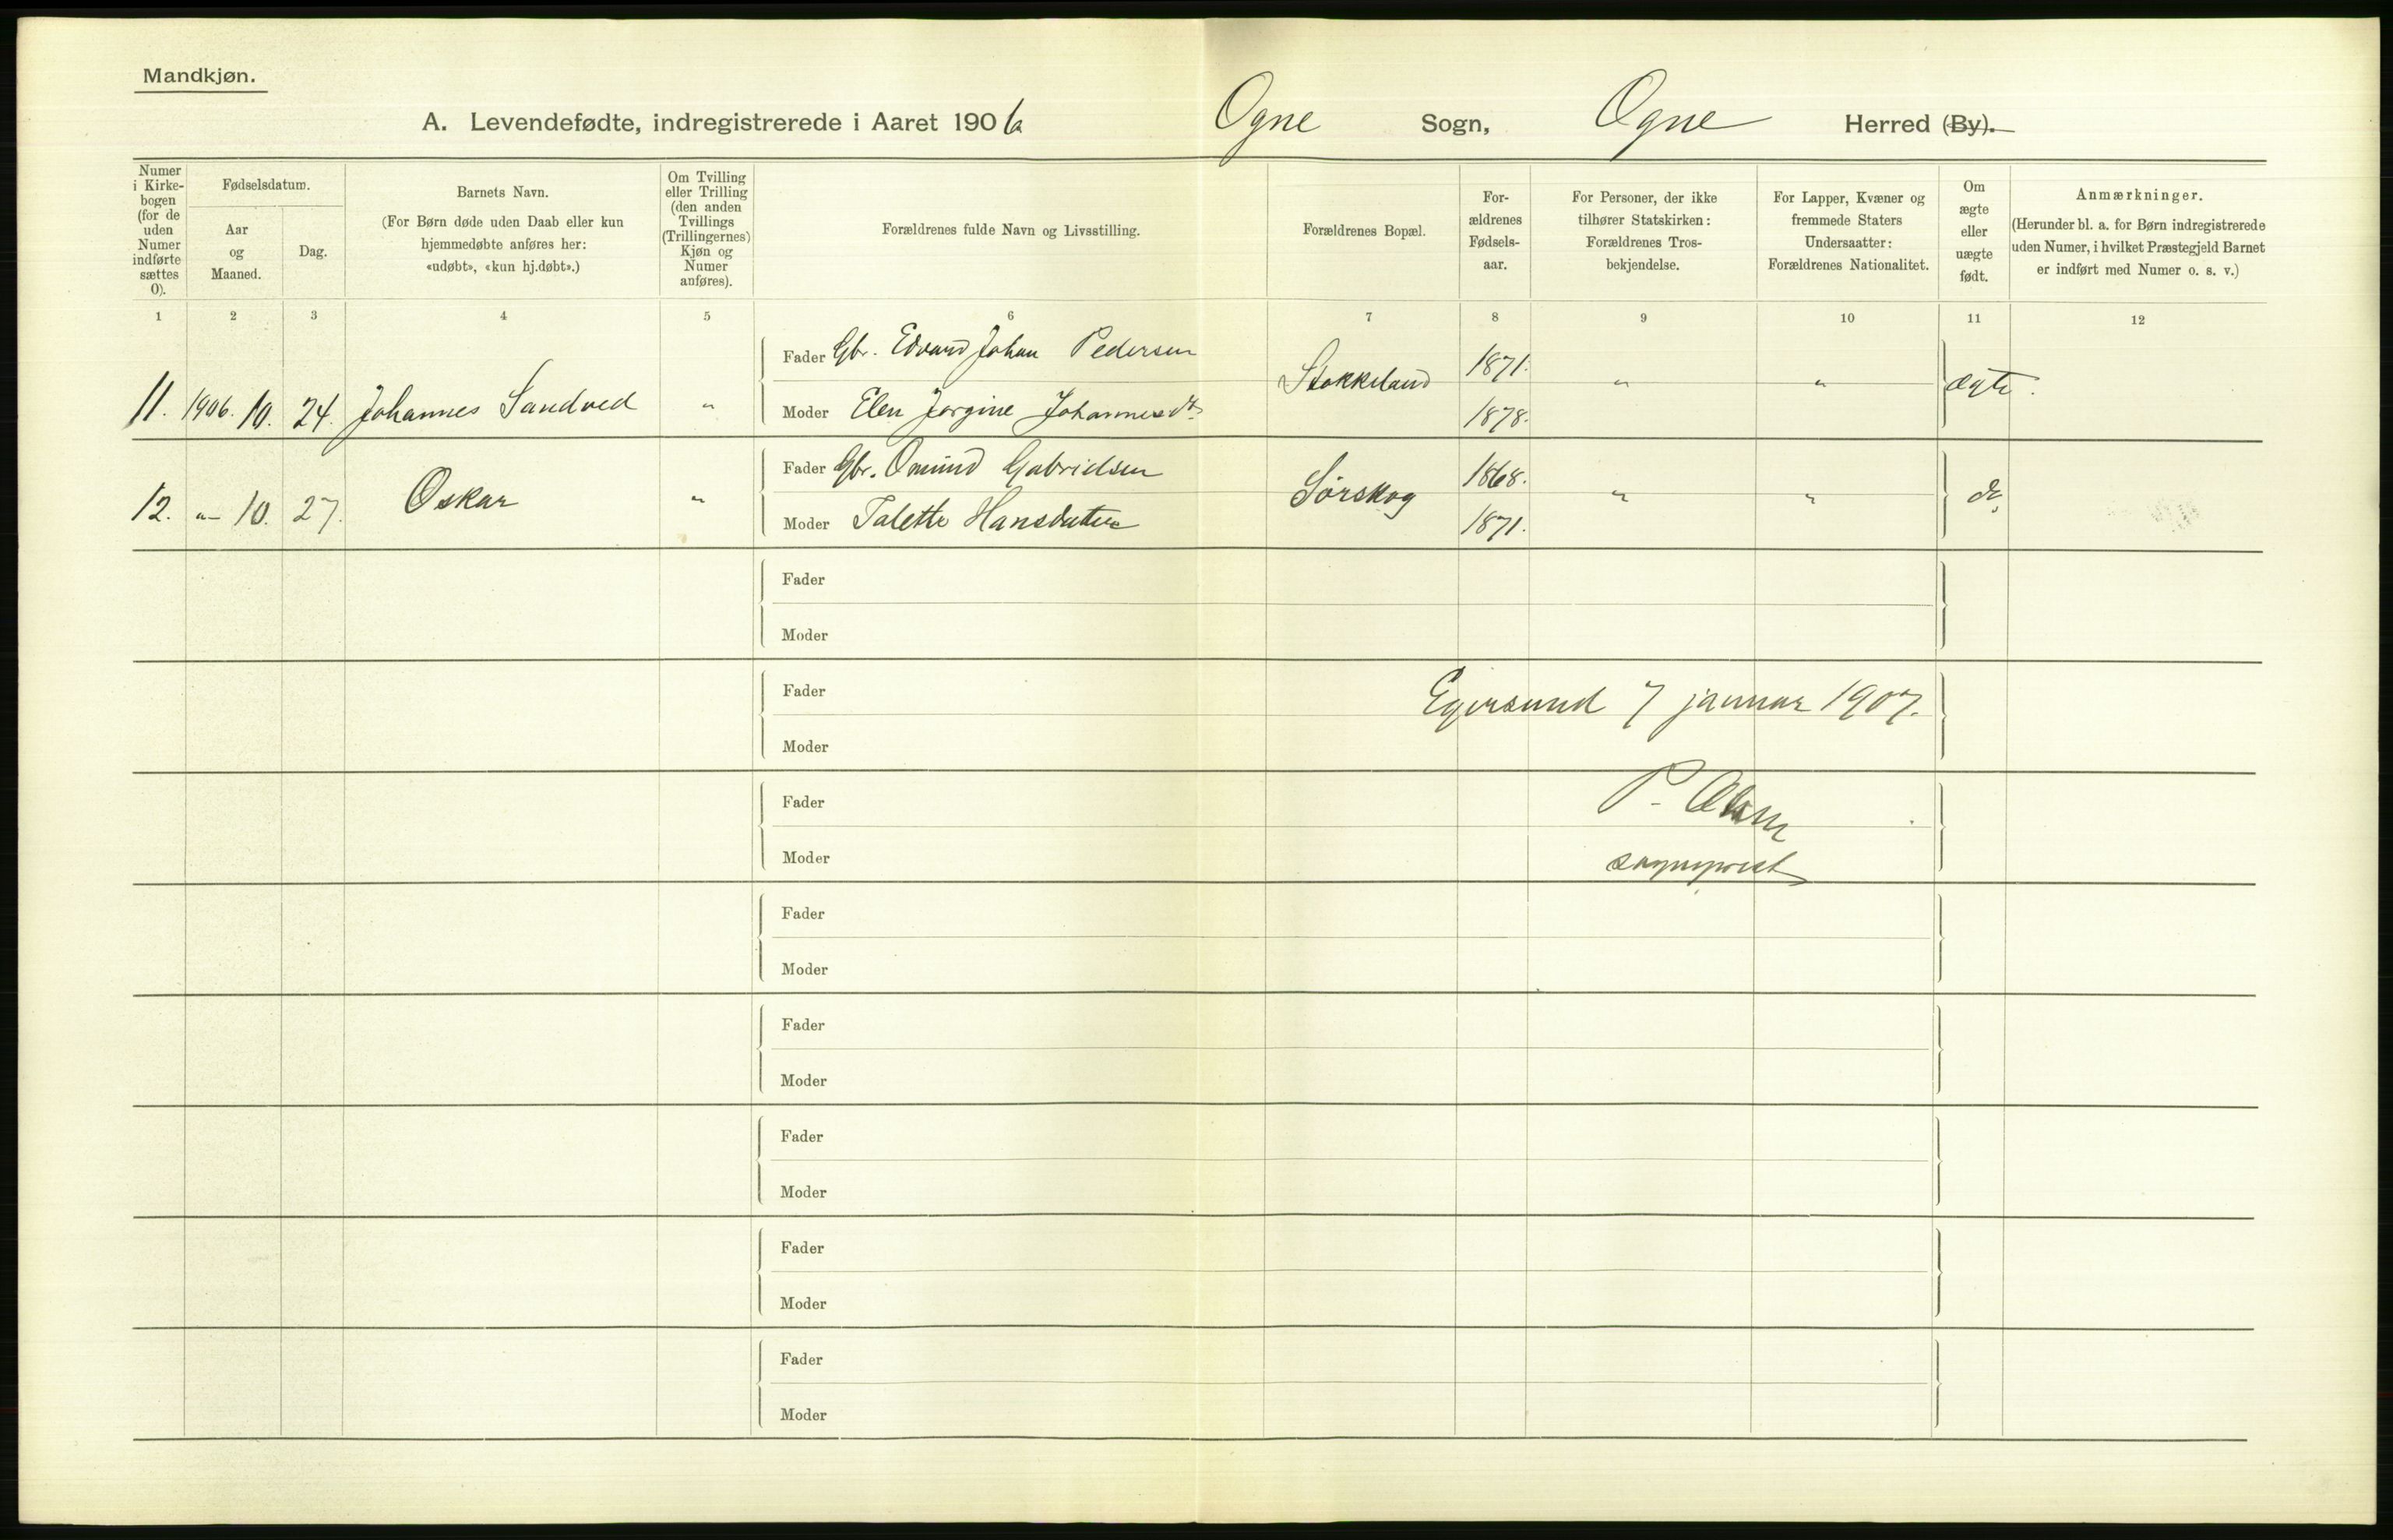 Mandkjøn.
A. Levendefødte, indregistrerede i Aaret 1906 Ogne Sogn, Ogne Herred (By).
Numer i Kirkebogen (for de uden Numer indførte sættes 0).
Fødselsdatum.
Aar og Maaned.
Dag.
Barnets Navn.
(For Børn døde uden Daab eller kun
hjemmedøbte anføres her:
«udøbt», «kun hj.døbt».)
Om Tvilling
eller Trilling
(den anden
Tvillings
(Trillingernes)
Kjøn og
Numer
anføres).
Forældrenes fulde Navn og Livsstilling.
Forældrenes Bopæl.
For-
ældrenes
Fødsels-
aar.
For Personer, der ikke
tilhører Statskirken:
Forældrenes Tros-
bekjendelse.
For Lapper, Kvæner og
fremmede Staters
Undersaatter:
Forældrenes Nationalitet.
Om
ægte
eller
uægte
født.
Anmærkninger.
(Herunder bl. a. for Børn indregistrerede
uden Numer, i hvilket Præstegjeld Barnet
er indført med Numer o. s. v.)
1 2 3 4 5 6 7 8 9 10 11 12
Fader Gbr. Edvard Johan Pedersen 1871.
11. 1906. 10. 24. Johannes Sandved " Stokkeland " " ægte.
Moder Elen Jørgine Johannesdtr 1878.
Fader Gbr. Omund Gabrielsen 1868.
12. " 10. 27. Oskar " Sørskog " " do
Moder Talette Hansdatter 1871.
Fader
Moder
Fader
Egersund 7 januar 1907.
Moder
Fader
P.
Moder
sogneprest
Fader
Moder
Fader
Moder
Fader
Moder
Fader
Moder
Fader
Moder